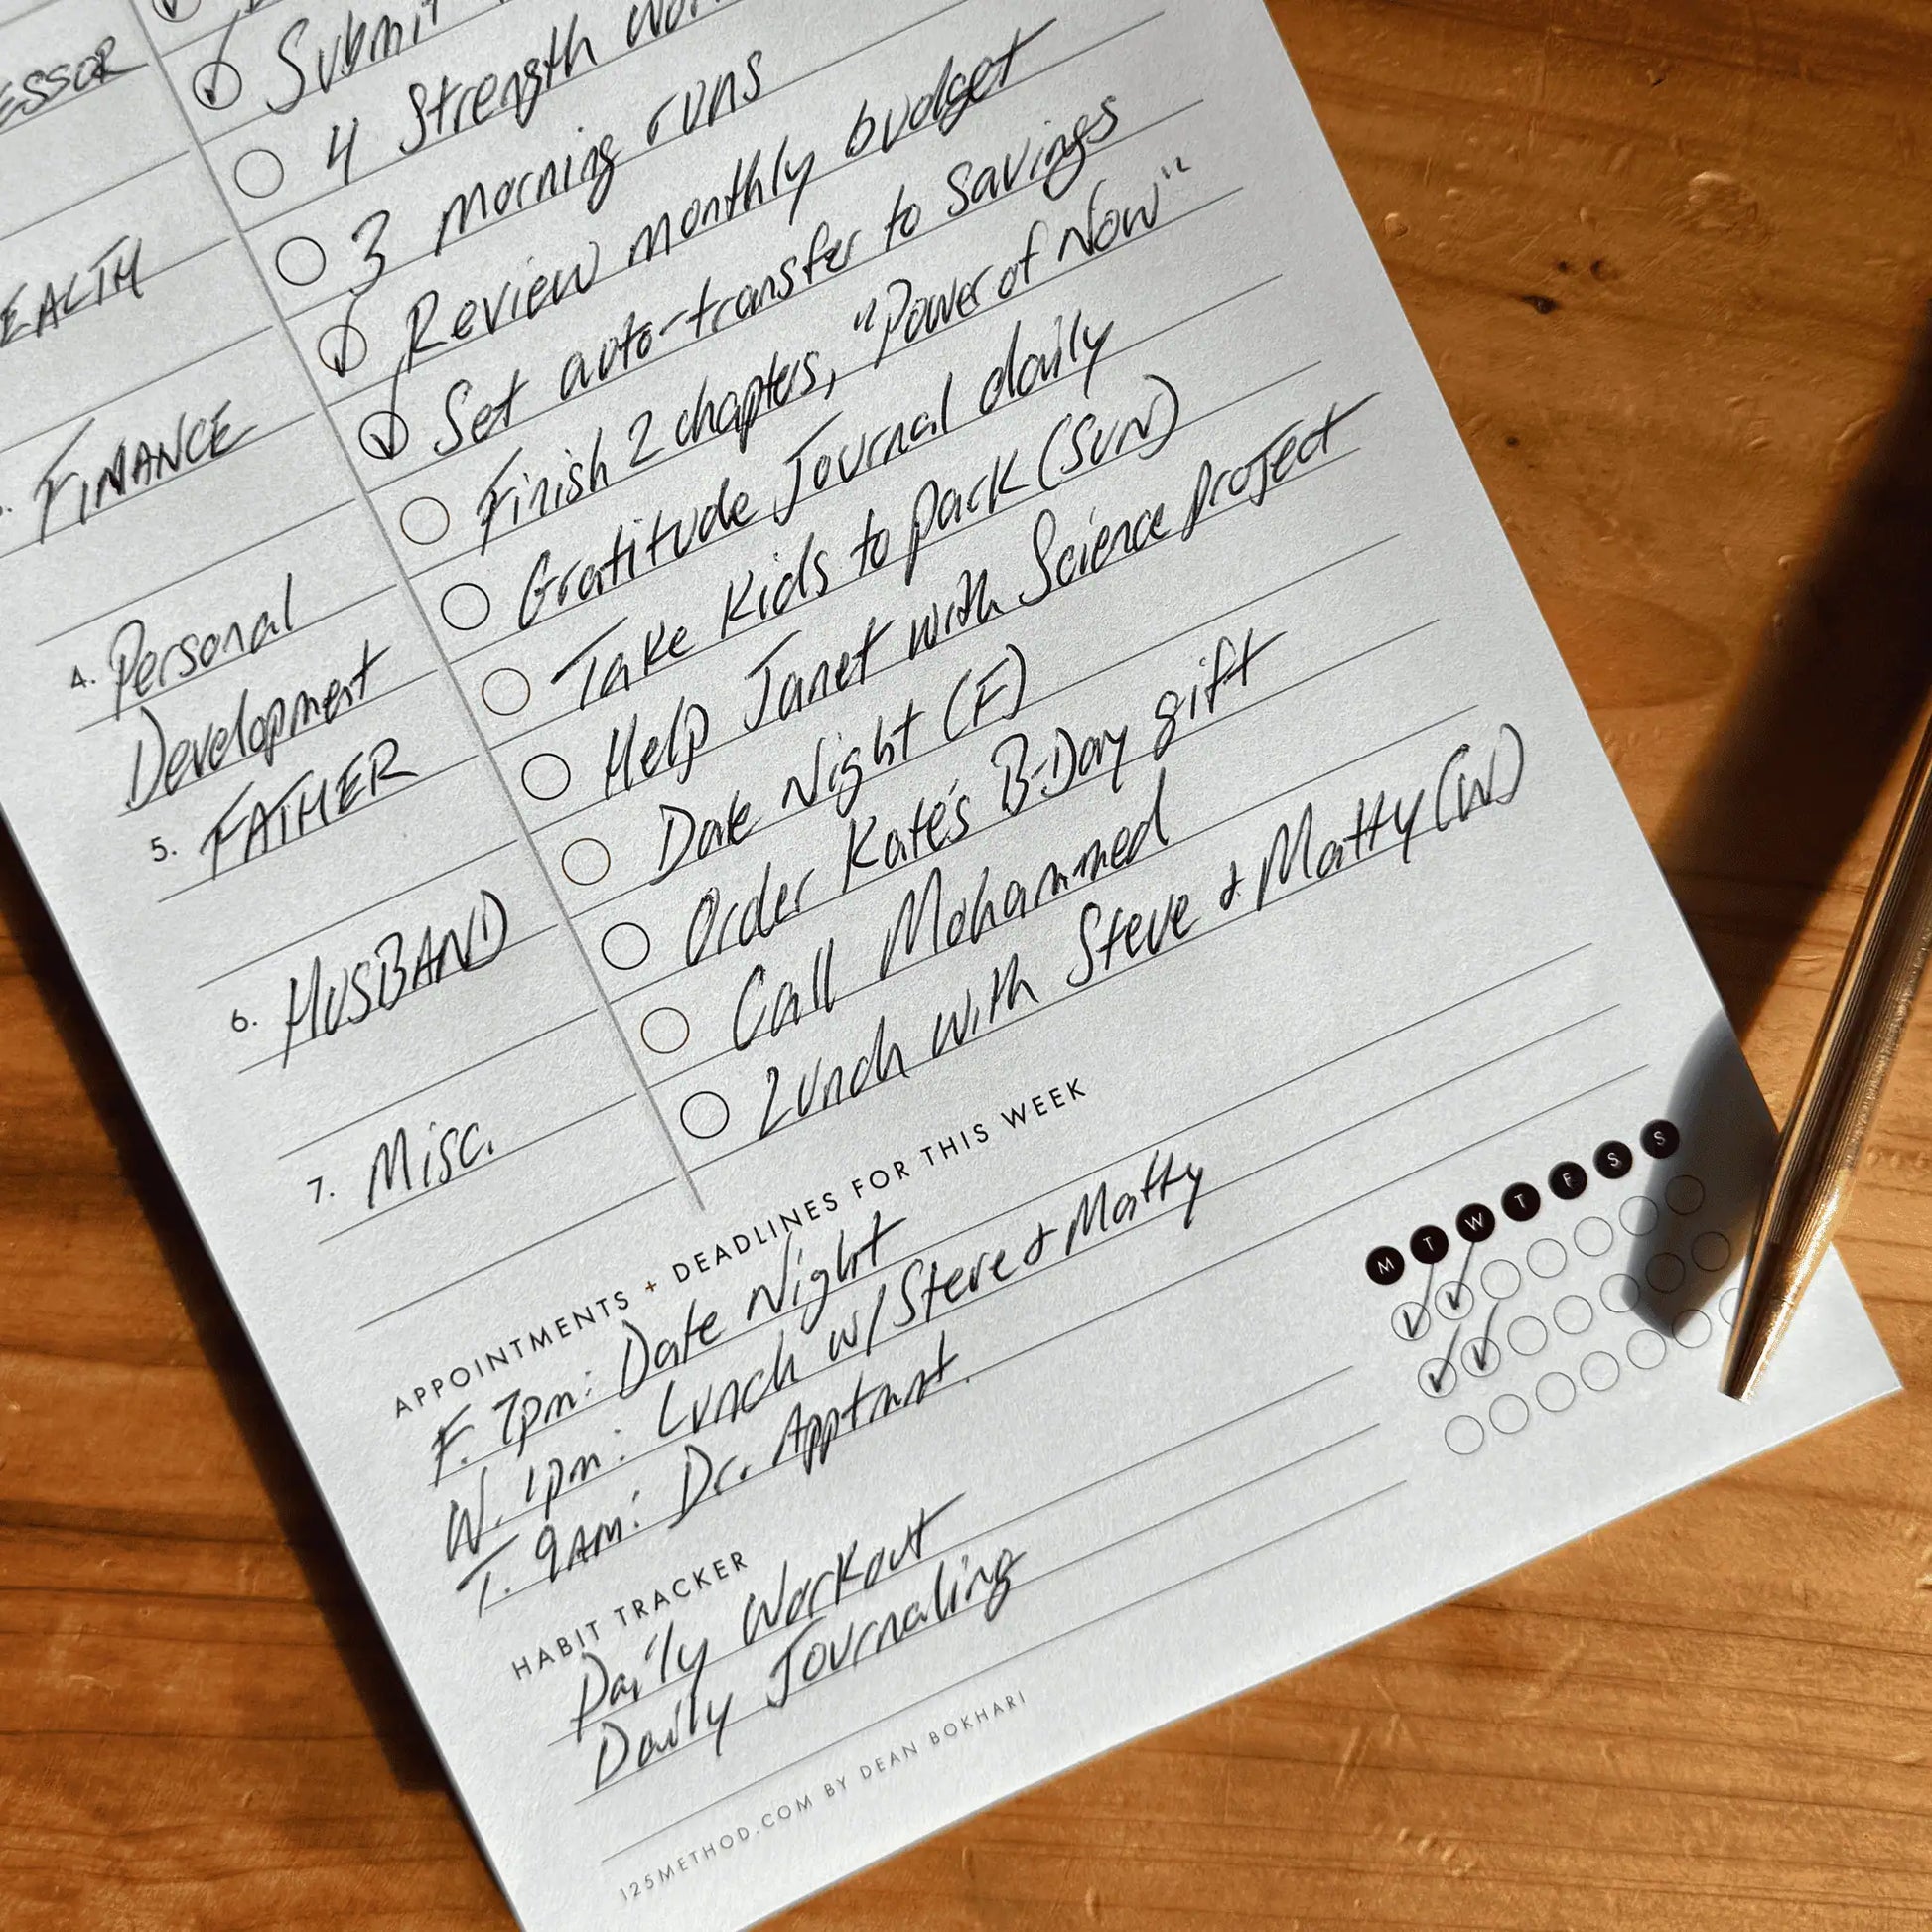 Submit
ESSOR
4 Strength
3 morning runs
EALTH
Review monthly budget
Set auto-transfer to savings
FINANCE
Finish 2 chapters, "Power of Now"
Gratitude Journal daily
4. Personal
Development
Take Kids to park (SUN)
Help Janet with Science project
5. FATHER
Date Night (F)
Order Kate's B-Day gift
6. HUSBAND
Call Mohammed
Lunch with Steve & Matty (W)
7. Misc.
APPOINTMENTS + DEADLINES FOR THIS WEEK
F. 7pm: Date Night
W. 1pm: Lunch w/ Steve & Matty
T. 9AM: Dr. Apptmnt.
HABIT TRACKER
M T W T F S S
Daily Workout
Daily Journaling
125METHOD.COM BY DEAN BOKHARI